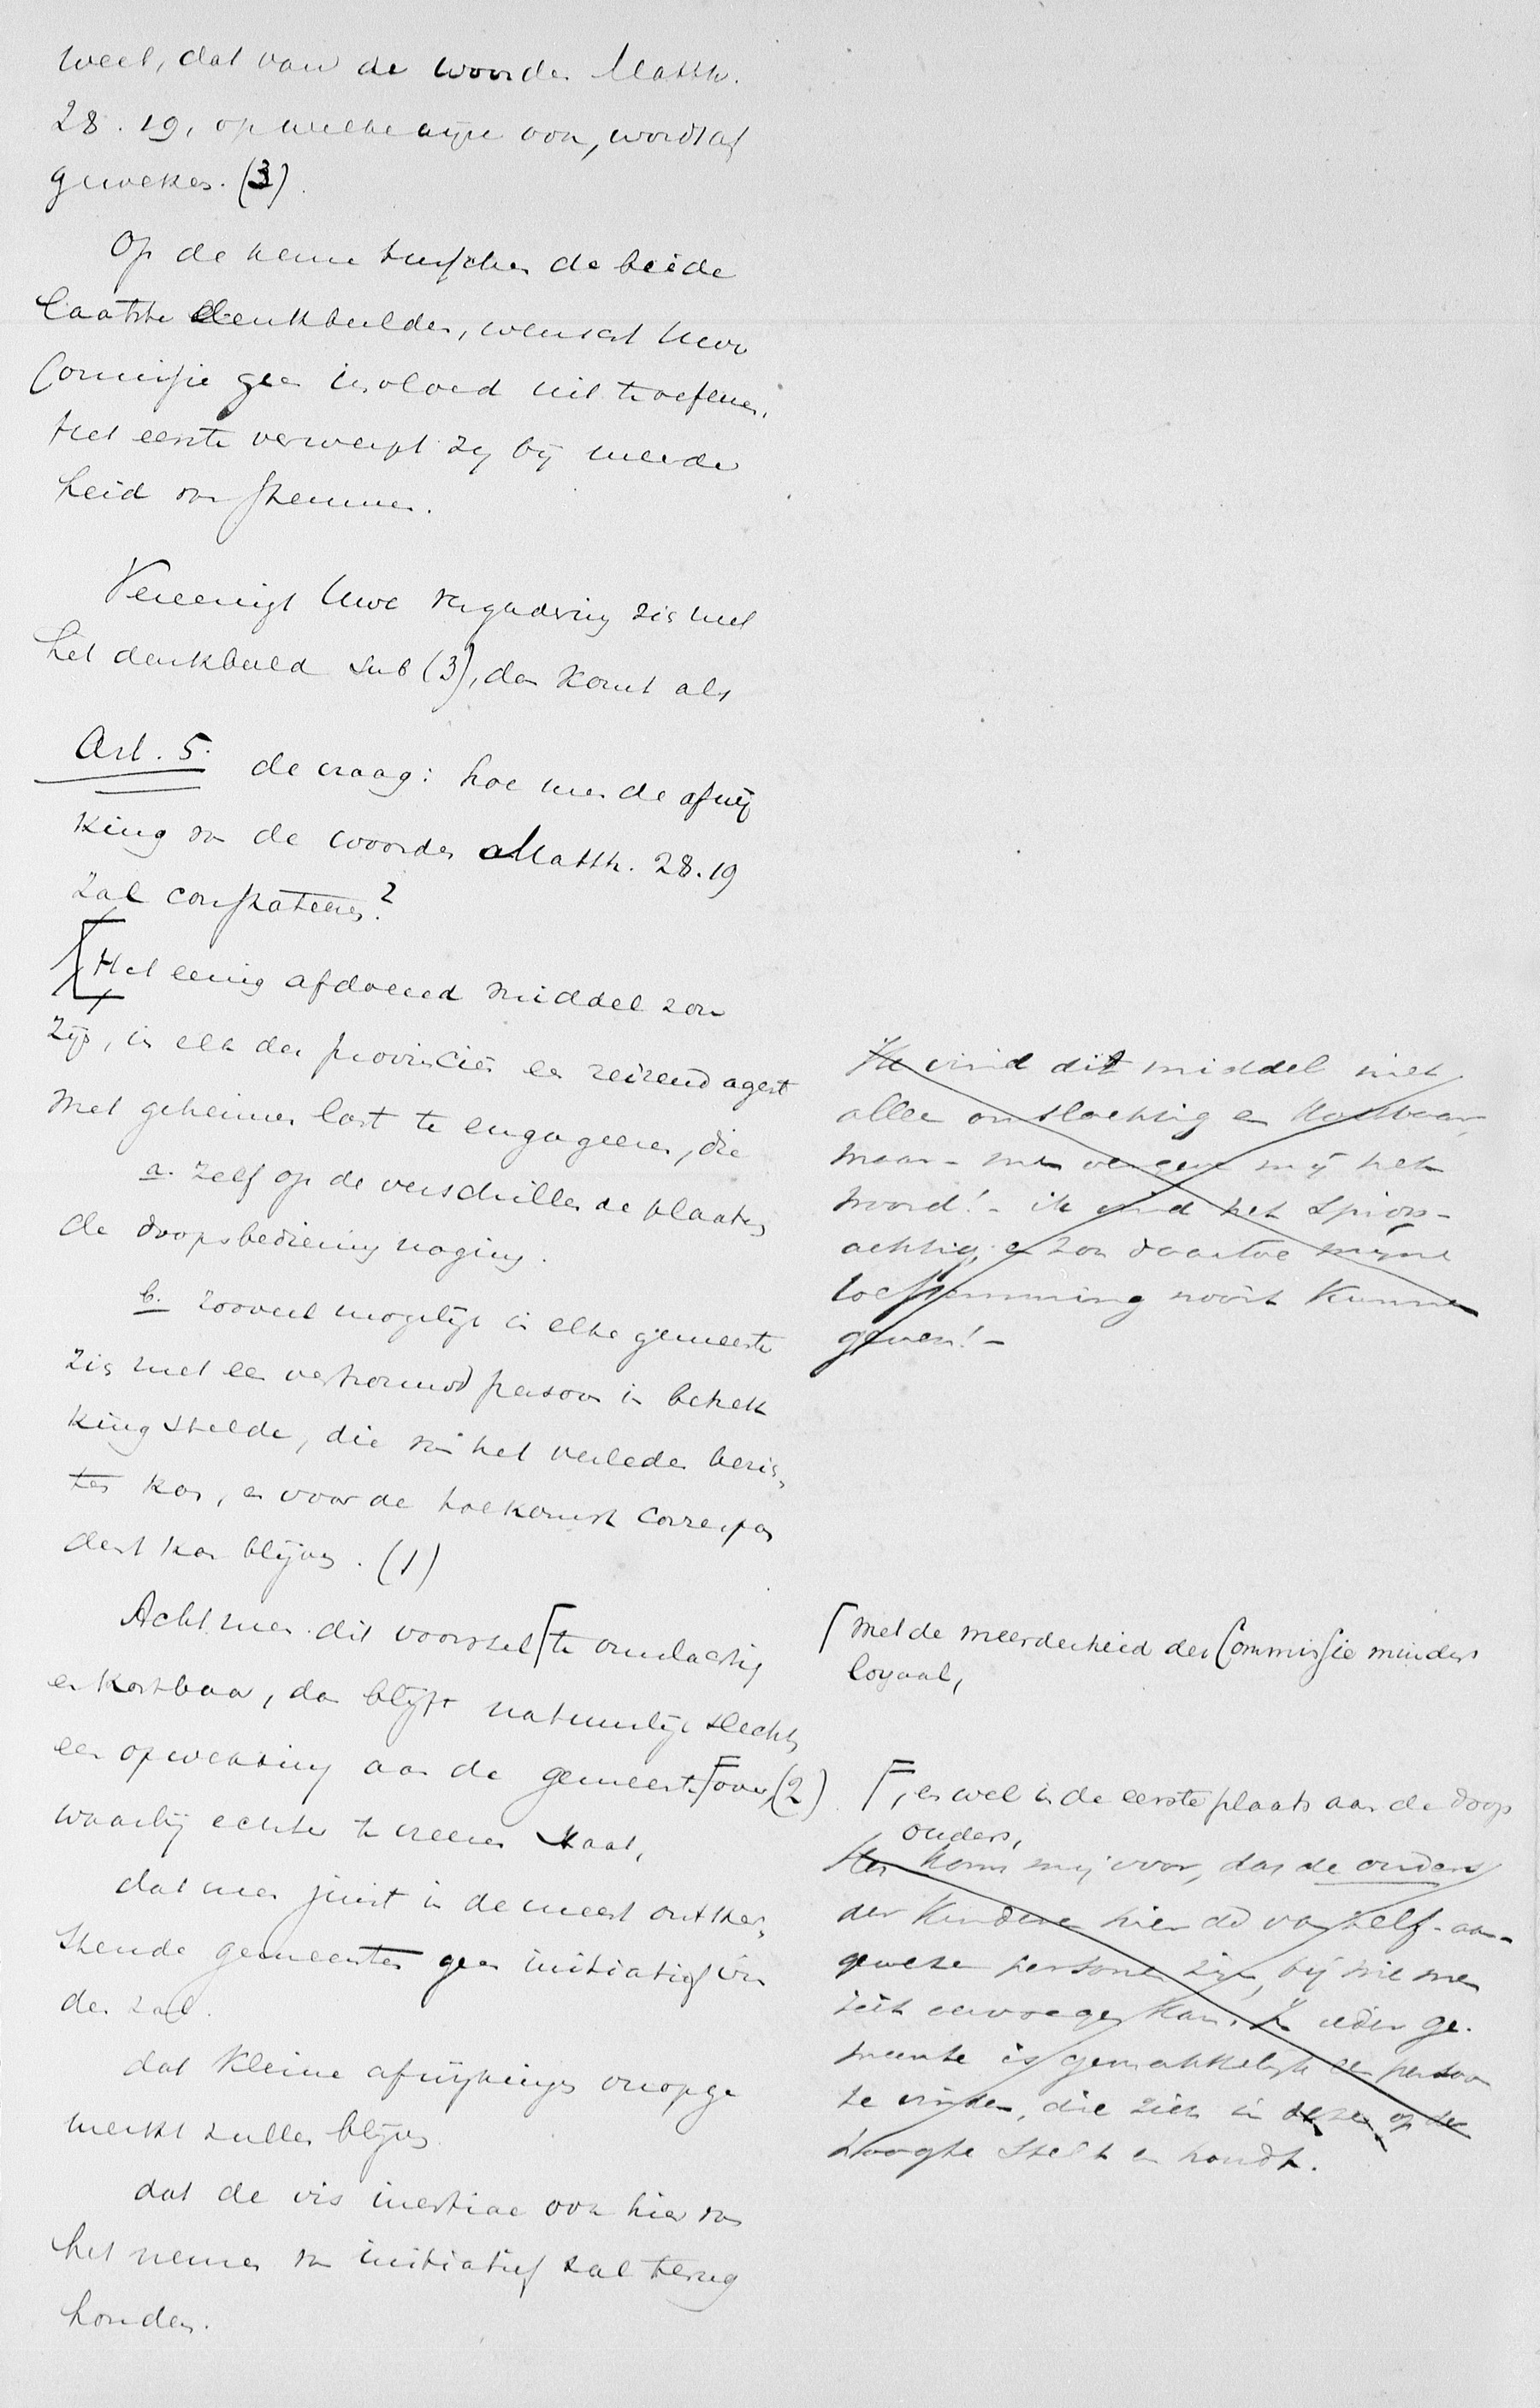 weet, dat van de woorden Matth.
28. 19, op welke wijze ook, wordt af
geweken. (3).
Op de keuze tusschen de beide
laatste denkbeelden, wenscht Uwe
Commissie geen invloed uit te oefenen.
Het eerste verwerpt zij bij meerder
heid van stemmen.
Vereenigt Uwe vergadering zich met
het denkbeeld sub (3), dan komt als
Art. 5. de vraag: hoe men de afwij
king van de woorden Matth. 28. 19
zal constateeren?
Het eenig afdoend middel zou
zijn, in elk der provinciën een reizend agent
met geheimen last te engageeren, die
a. zelf op de verschillende plaatsen
de doopsbediening naging.
b. zooveel mogelijk in elke gemeente
zich met een vertrouwd persoon in betrek
king stelde, die van het verleden berich
ten kon, en voor de toekomst correspon
dent kon blijven. (1)
Acht men dit voorstel te omslachtig
en kostbaar, dan blijft natuurlijk slechts
een opwekking aan de gemeente over, (2)
waarbij echter te vreezen staat,
dat men juist in de meest ontker
stende gemeenten geen initiatief vin
den zal.
dat kleine afwijkingen onopge
merkt zullen blijven
dat de vis inertiae ook hier van
het nemen van initiatief zal terug
houden.
Ik vind dit middel niet
alleen omslachtig en kostbaar,
maar - men vergeve mij het
woord! - ik vind het spion-
achtig, en zou daartoe mijne
toestemming nooit kunnen
geven! -
met de meerderheid der Commissie minder
loyaal,
, en wel in de eerste plaats aan de doop
ouders,
Het komt mij voor, dat de ouders
der kinderen hier de van zelf-aan-
gewezen personen zijn, bij wie men
zich vervoegen kan. In ieder ge-
meente is gemakkelijk een persoon
te vinden, die zich in deze op de
hoogte stelt en houdt.